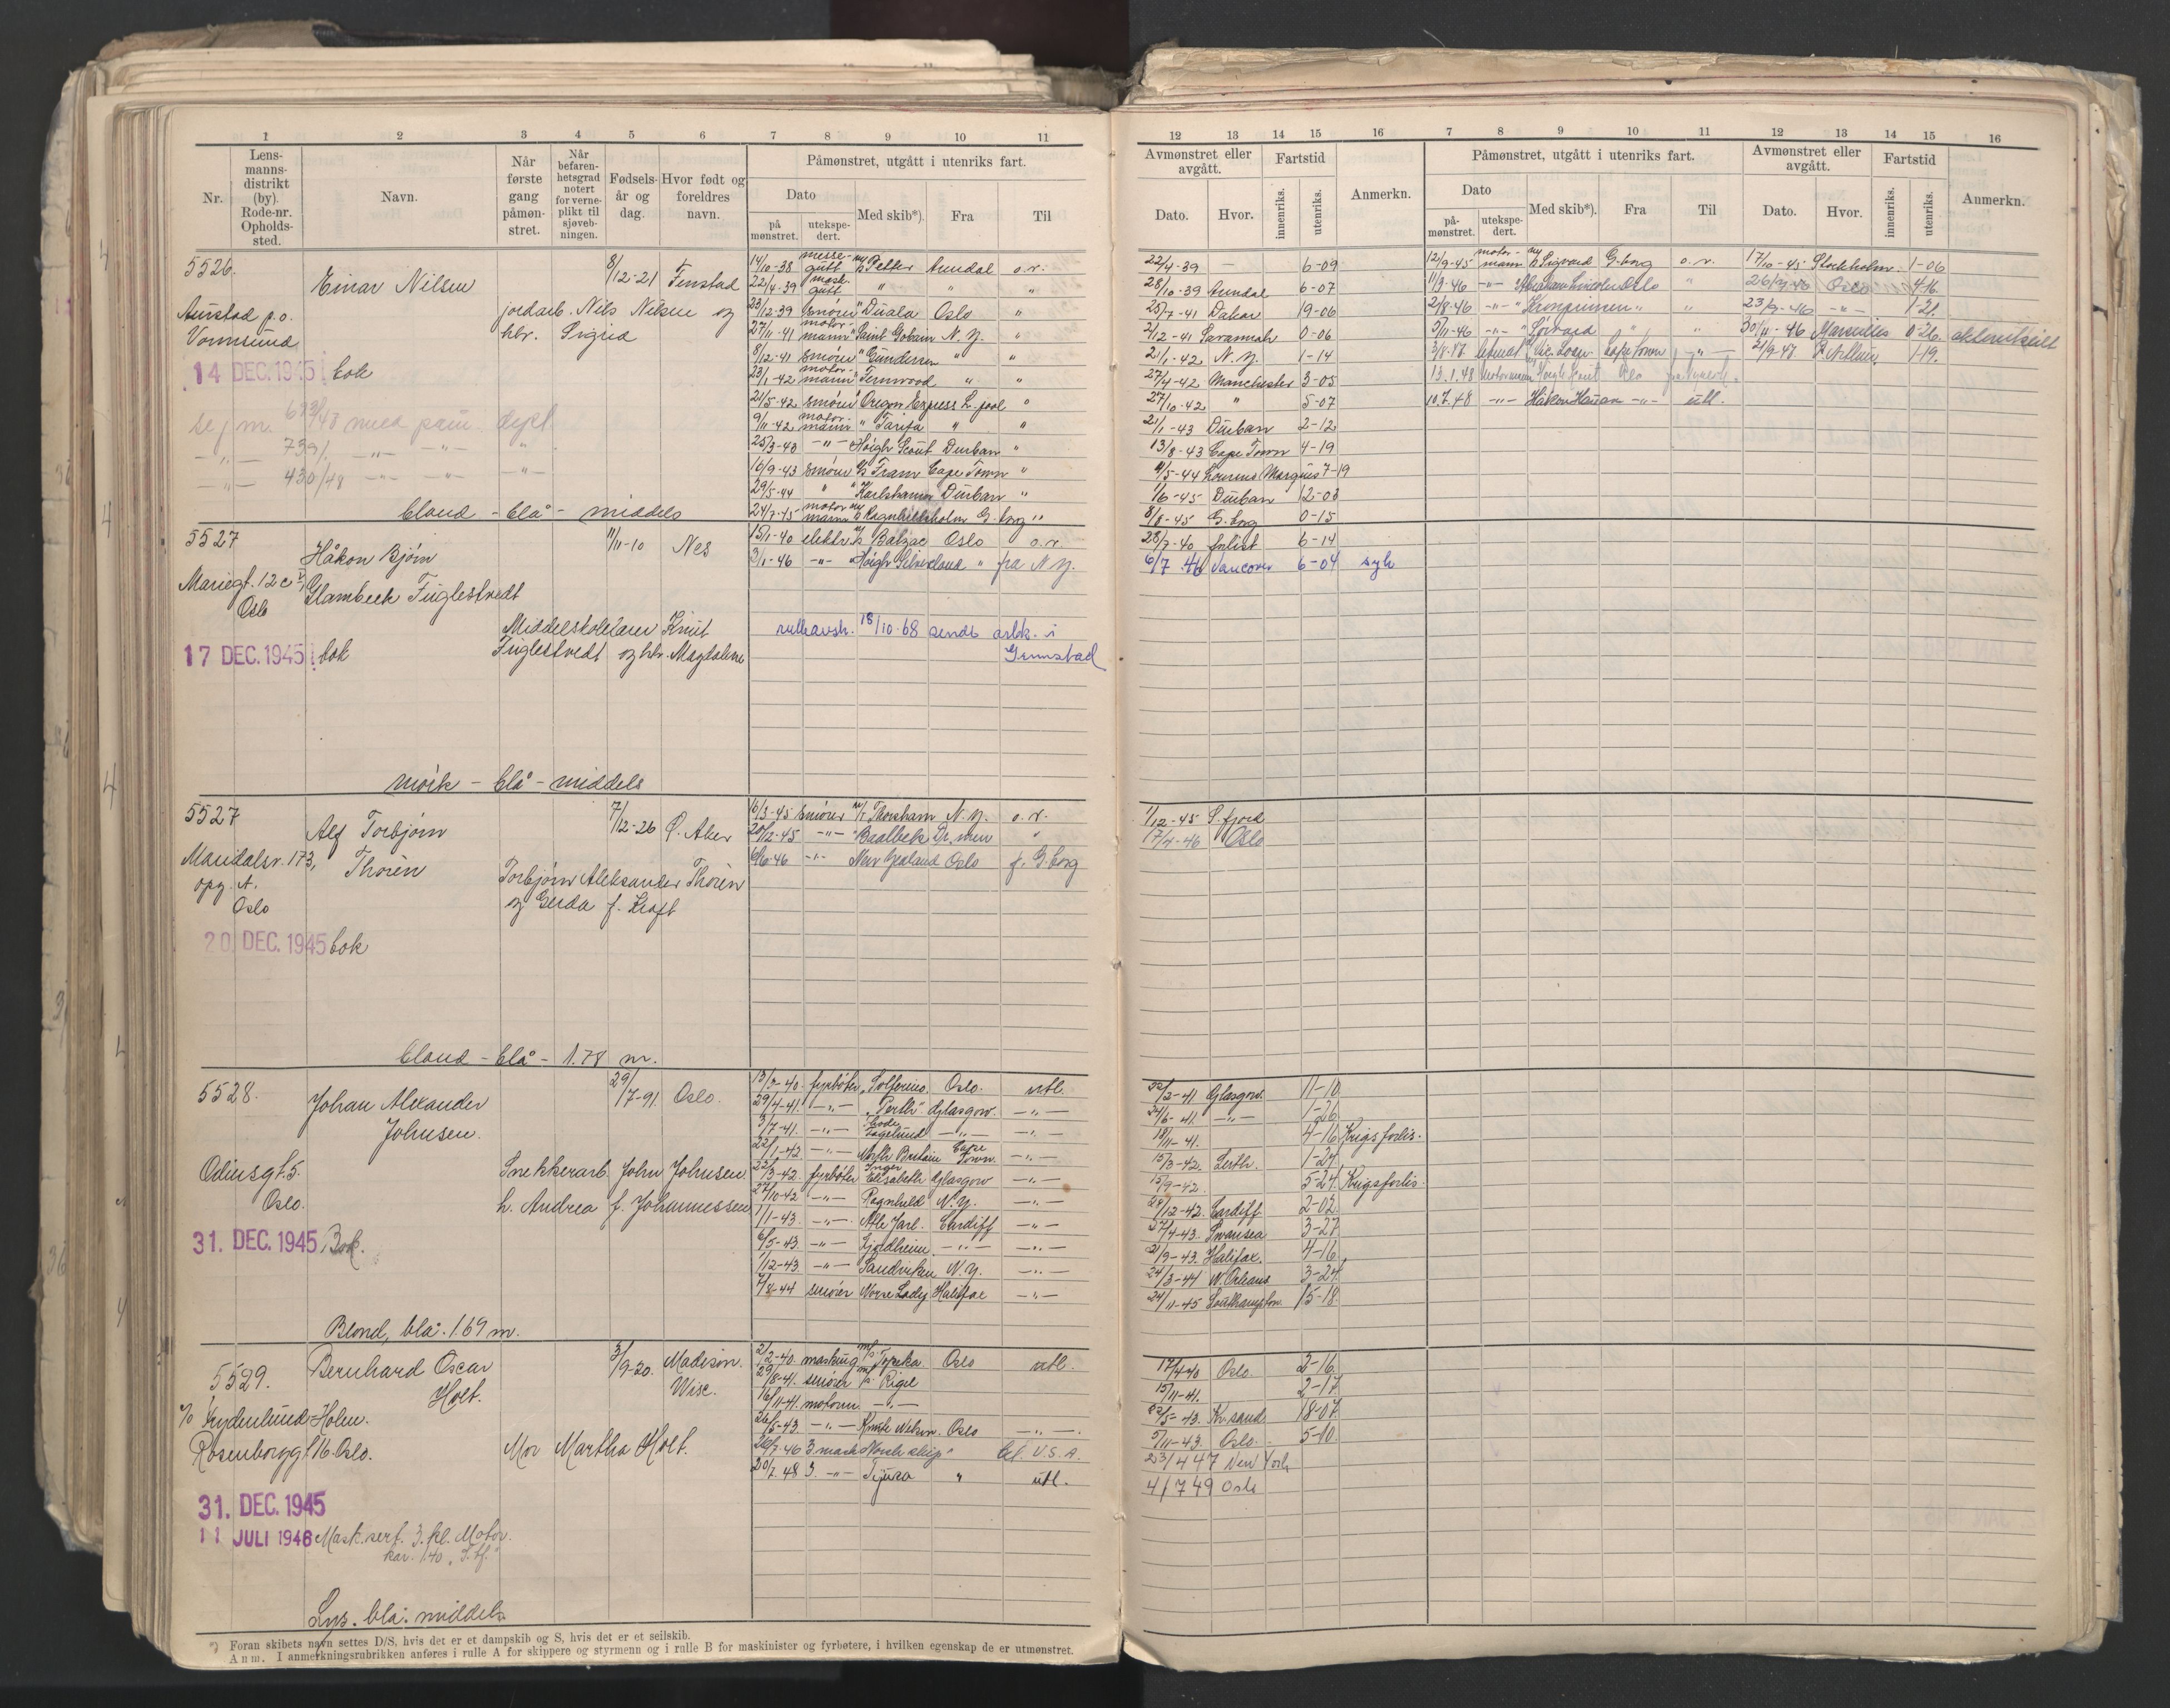 1 2 3 4 5 6 7 8 9 10 11
Nr. Lensmannsdistrikt (by). Rode-nr. Opholdssted. Navn. Når første gang påmønstret. Når befarenhetsgrad notert for verneplikt til sjøvebningen. Fødselsår og dag. Hvor født og foreldres navn. Påmønstret, utgått i utenriks fart.
Dato på mønstret. utekspedert. Med skib*). Fra Til
5526. Einar Nilsen 8/12-21 Fenstad
Aurstad p.o. jordarb. Nils Nilsen og
Vormsund hbr. Sigrid
14 DEC. 1945 bok
14/10-38 messegutt Petter Arendal o.r.
22/4-39 mask.gutt " " "
23/12-39 smører " Duala Oslo "
27/11-41 motormann " Saint Gobain N.Y. "
8/12-41 smører " Gundersen " "
23/1-42 motormann " Fernwood " "
21/5-42 smører " Oregon Express L.pool "
9/11-42 motormann " Tarifa " "
25/3-43 -"- " Höigh Scout Durban "
16/9-43 smører Fram Cape Town "
29/5-44 " " Karlshamn Durban "
24/7-45 motormann Ragnhildsholm G.borg "
bland - blå - middels
5527 Håkon Bjørn 11/11-10 Nes
Mariegt. 12 c Glambeck Fuglestvedt
Oslo
Middelskolelærer Knut
17 DEC. 1945 bok Fuglestvedt og hbr. Magdalene
15/1-40 elektr. Balzac Oslo o.r.
3/1-46 -"- " Höigh Silvercloud " fra N.Y.
rulleavsk. 18/10-68 sendt arbk. i
Grimstad
mörk - blå - middels
5527 Alf Torbjørn 7/12-26 Ø. Aker
Maridalsv. 173, Thorèn
opg. A. Torbjørn Aleksander Thorèn
Oslo og Gerda f. Kraft
20 DEC. 1945 bok
6/3-45 smører M/T Thorsham N.Y. o.r.
20/12-45 -"- " Baalbek Dr.men "
6/6-46 -"- New Zealand Oslo f. G.borg
bland - blå - 1.78 m.
5528. Johan Alexander 29/7-91. Oslo.
Johnsen.
Odinsgt. 5. Snekkerarb. John Johnsen.
Oslo. h. Andrea f. Johannessen
31. DEC. 1945 Bok.
13/3-40. fyrbøter "Solferino. Oslo. utl.
29/4-41. -"- "Perth" Glasgow. -"-
3/7-41. -"- Fagelund -"- -"-
22/1-42 -"- North Britain Cape Town. -"-
22/3-42. fyrbøter Inger Elisabeth Glasgow -"-
27/10-42 -"- Ragnhild N.Y. -"-
1/1-43. -"- Atle Jarl. Cardiff -"-
6/5-43. -"- Gjeldheim. -"- -"-
1/12-43. -"- Sandviken N.Y. -"-
7/8-44 smører Norse Lady Halifax -"-
Blond, blå. 1.69 m.
5529. Bernhard Oscar 3/9-20. Madison.
Holt. Wisc.
c/o Frydenlund Holm.
Rosenborggt 16 Oslo. Mor Martha Holt.
31. DEC. 1945
11 JULI 1946 Mask.sert. 3. kl. Motor.
2/2-40. masking M/S. Topeka Oslo utl.
29/8-41. smører M/S. Rigel
16/11-41. motorm. -"-
26/5-43. -"- Knute Nelson. Oslo -"-.
26/7-46 3 mask North ship" til U.S.A.
20/7.48 3. -"- Tijuca " utl.
Lys. blå. middels
*) Foran skibets navn settes D/S, hvis det er et dampskib og S, hvis det er et seilskib.
Anm. I anmerkningsrubrikken anføres i rulle A for skippere og styrmenn og i rulle B for maskinister og fyrbøtere, i hvilken egenskap de er utmønstret.
12 13 14 15 16 7 8 9 10 11 12 13 14 15 16
Avmønstret eller avgått. Fartstid Anmerkn. Påmønstret, utgått i utenriks fart. Avmønstret eller avgått. Fartstid Anmerkn.
Dato. Hvor. innenriks. utenriks. Dato påmønstret. utekspedert. Med skib*). Fra Til Dato. Hvor. innenriks. utenriks.
22/4-39 — 6-09 12/9-45 motormann Sigvard G.borg o.r. 17/10-45 Stockholm. 1-06
28/10-39 Arendal 6-07 11/3-46 -"- Abraham Lincoln Oslo " 26/7-46 Oslo 4-16
25/7-41 Dakar 19-06 2/8-46 -"- " Kronprinsen " " 23/9-46 -"- 1-21.
2/12-41 Savannah 0-06 5/11-46 -"- " Sörvard " " 30/11-46 Marseilles 0-26.
21/1-42 N.Y. 1-14 3/8-47 Cape Town -"- 21/9-47 1-19.
27/4-42 Manchester 3-05 13.1.48 motormann Höegh Oslo
27/10-42 " 5-07 10.7.48 -"- Håkon Hauan -"- utl.
21/1-43 Durban 2-12
13/8-43 Cape Town 4-19
11/5-44 Lourens Marques 7-19
1/6-45 Durban 12-03
8/8-45 G.borg 0-15
28/7-40 forlist 6-14
6/7 46 Vancover 6-04 syk
1/12-45 S.fjord
17/4-46 Oslo
22/2-41 Glasgow. 11-10
24/6-41. -"- 1-26
18/11-41. 4-16 Krigsforlis.
15/3-42. Leith. 1-24
15/9-42. 5-24. Krigsforlis.
28/12-42. Cardiff. 2-02.
27/4-43. Swansea 3-27
21/9-43. Halifax. 4-16
24/3-44 N. Orleans 3-24.
24/11-45 Southampton. 15-18.
17/4-40 Oslo. 2-16
15/11-41. 2-17
22/5-43. Kr.sand. 18-07.
5/11-43. Oslo. 5-10.
23/4 47 New York
4/7 49 Oslo